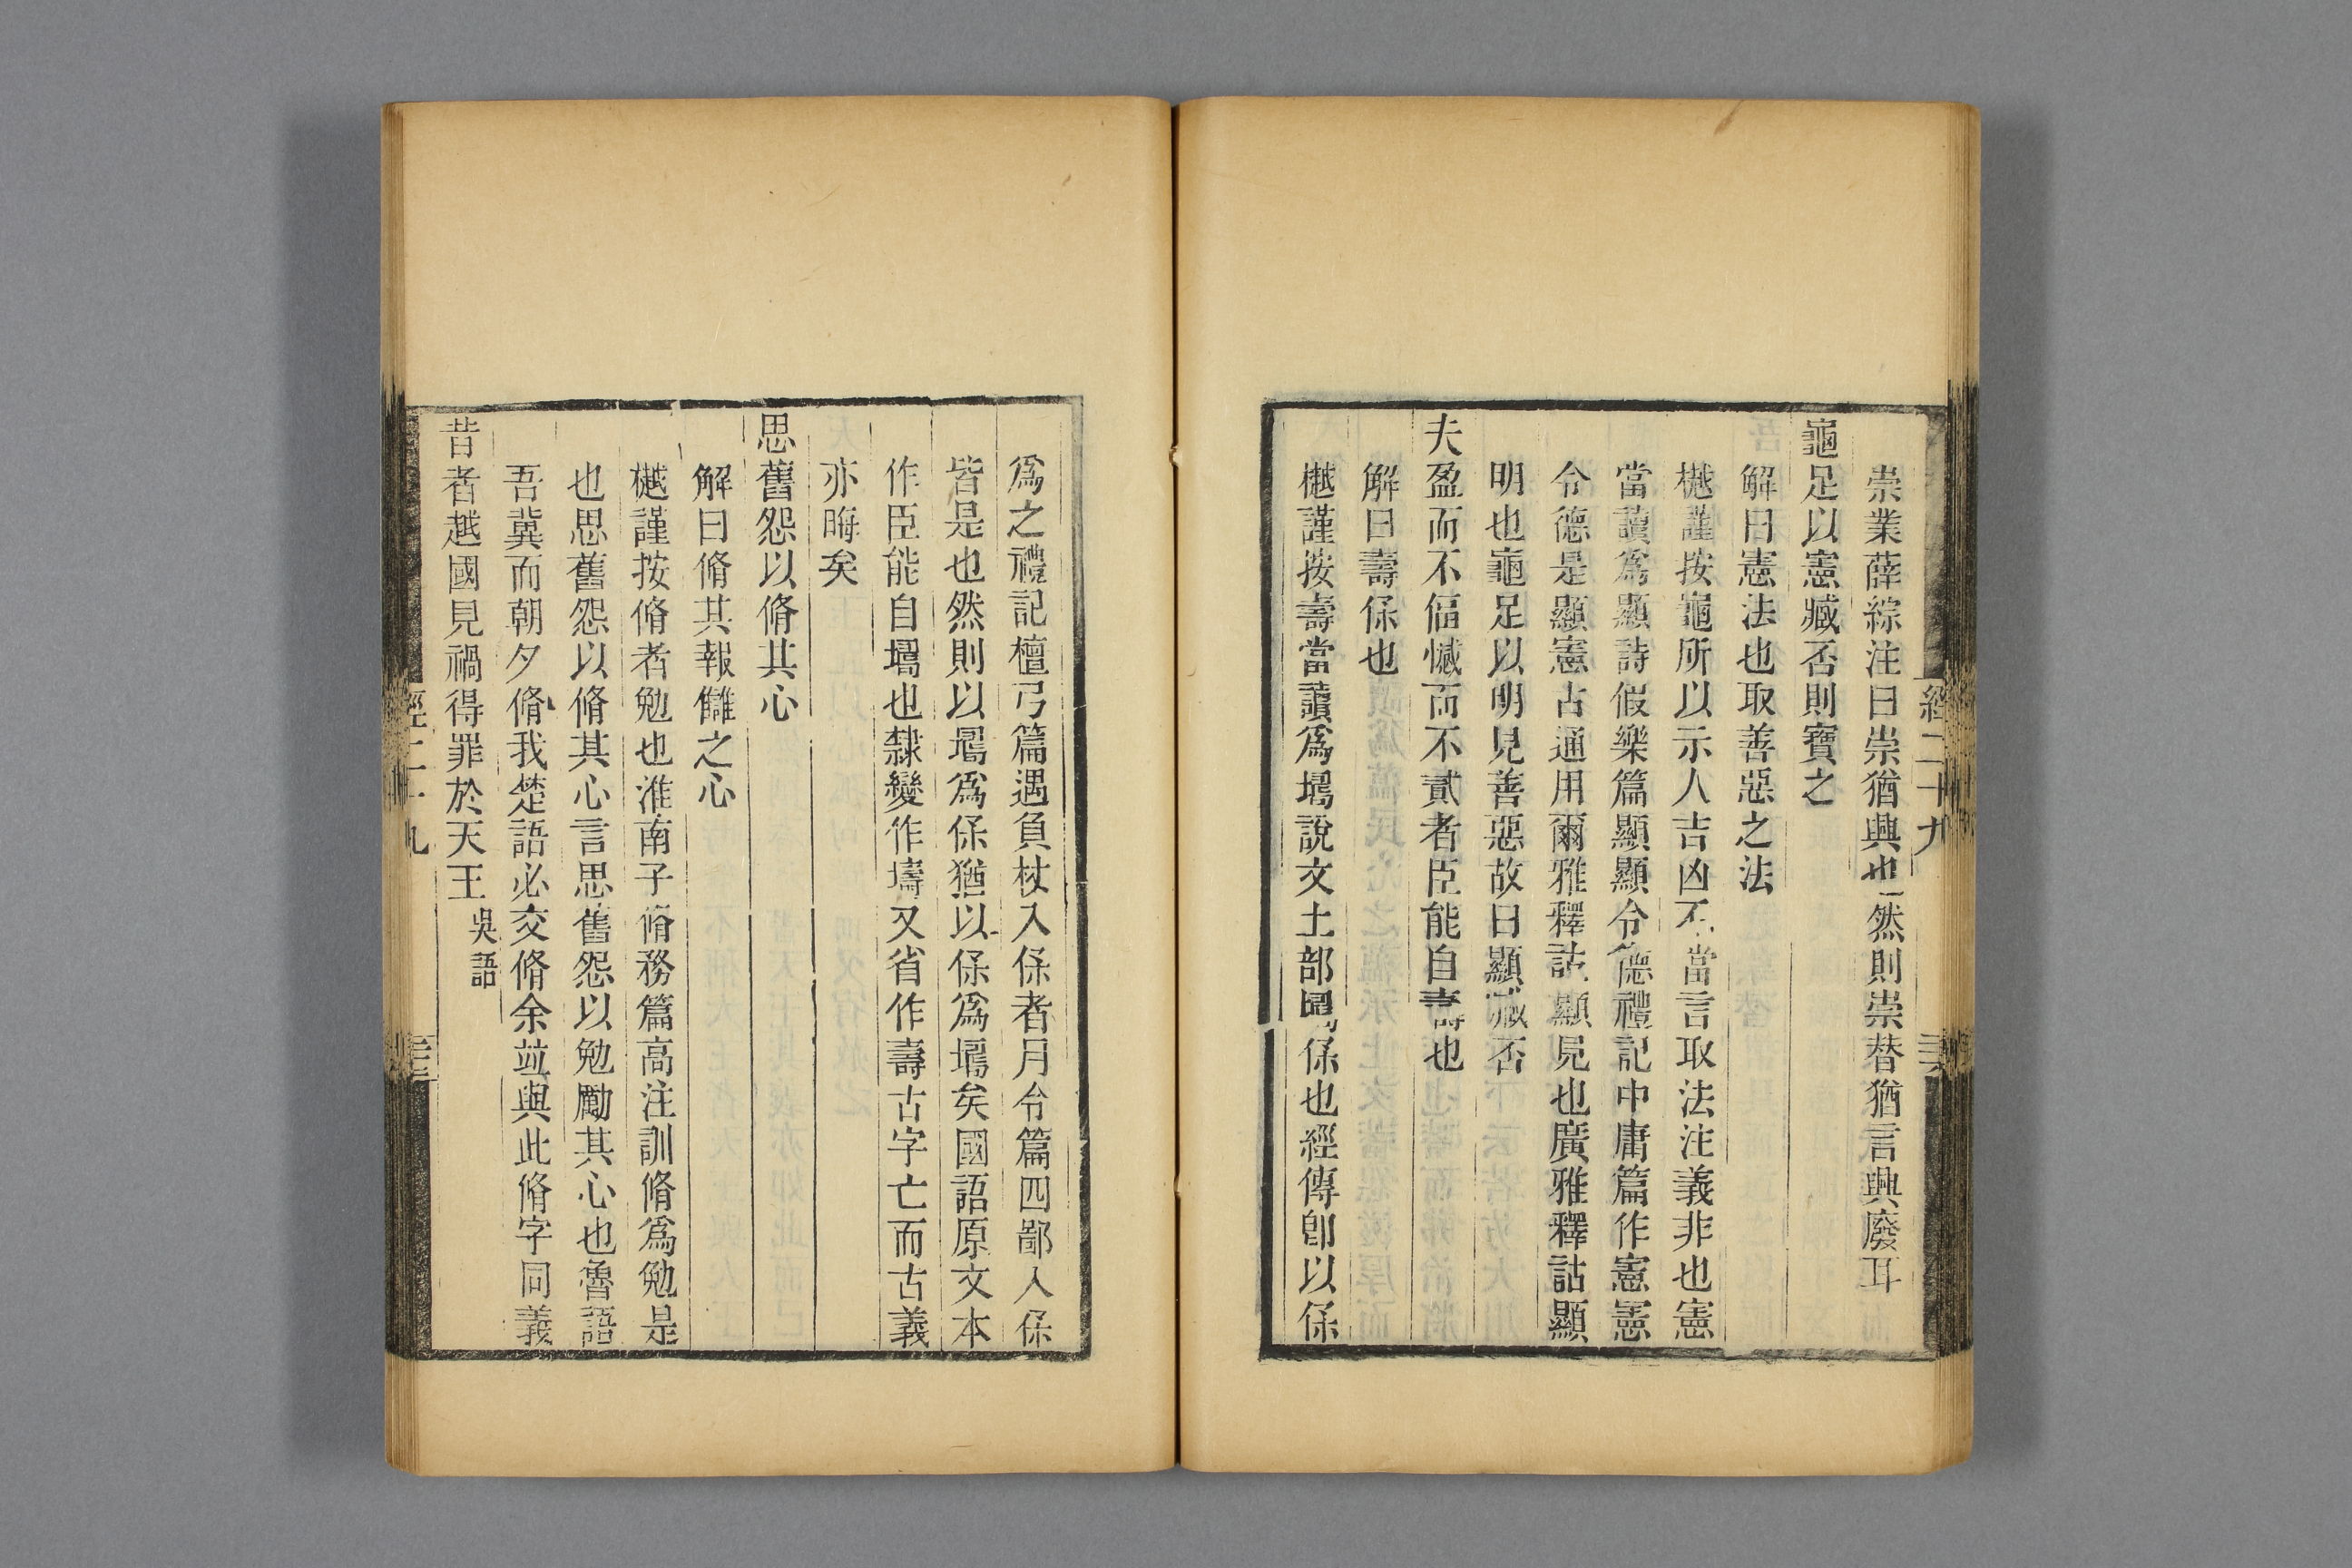 經二十九
三六
崇業薛綜注曰崇猶興也然則崇替猶言興廢耳
龜足以憲臧否則寶之
解曰憲法也取善惡之法
樾謹按龜所以示人吉凶不當言取法注義非也憲
當讀爲顯詩假樂篇顯顯令德禮記中庸篇作憲憲
令德是顯憲古通用爾雅釋詁顯見也廣雅釋詁顯
明也龜足以明見善惡故曰顯臧否
夫盈而不偪憾而不貳者臣能自壽也
解曰壽保也
樾謹按壽當讀爲壔說文土部壔保也經傳卽以保
爲之禮記檀弓篇遇負杖入保者月令篇四鄙入保
皆是也然則以壔爲保猶以保爲壔矣國語原文本
作臣能自壔也隸變作壔又省作壽古字亡而古義
亦晦矣
思舊怨以脩其心
解曰脩其報讎之心
樾謹按脩者勉也淮南子脩務篇高注訓脩爲勉是
也思舊怨以脩其心言思舊怨以勉勵其心也魯語
吾冀而朝夕脩我楚語必交脩余竝與此脩字同義
昔者越國見禍得罪於天王 吳語
經二十九